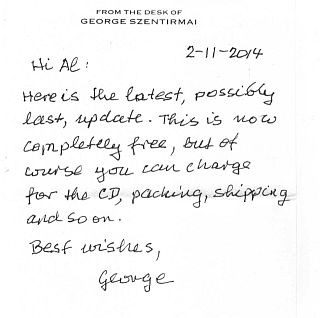 FROM THE DESK OF
GEORGE SZENTIRMAI
2-11-2014
Hi Al:
Here is the latest, possibly
last, update. This is now
completely free, but of
course you can charge
for the CD, packing, shipping
and so on.
Best wishes,
George